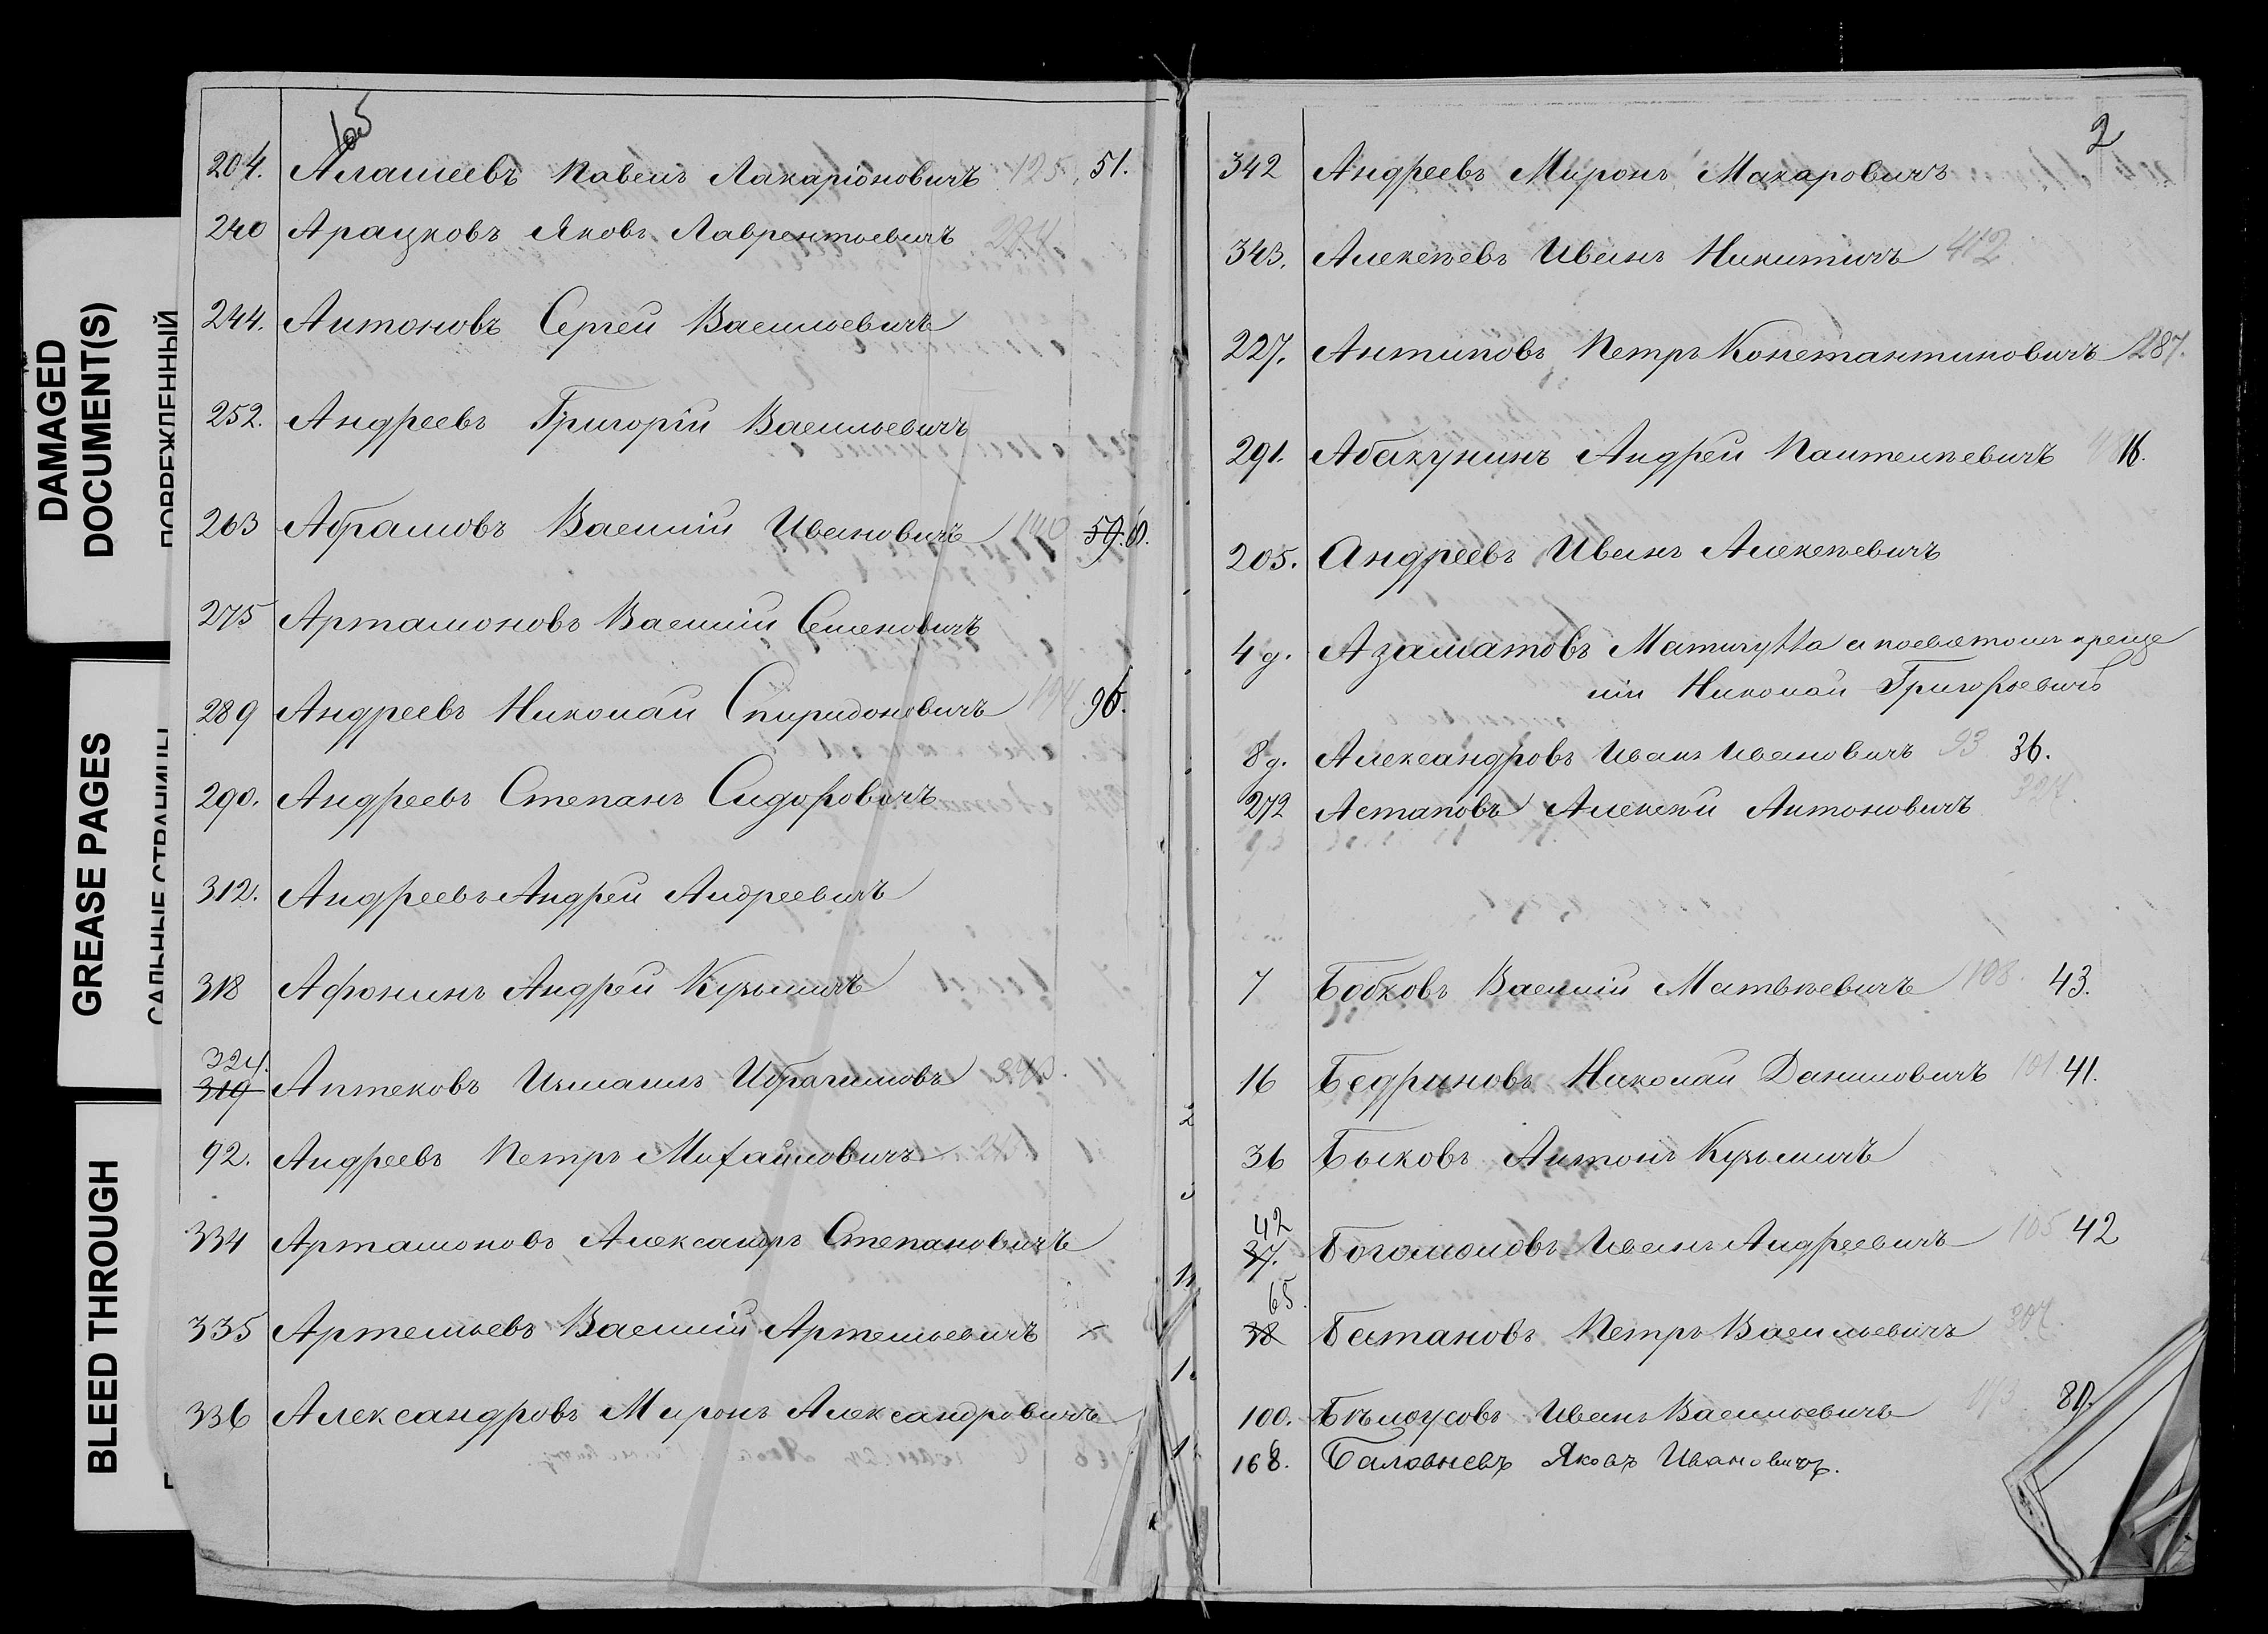 DAMAGED
DOCUMENT(S)
ПОВРЕЖДЕННЫЙ
GREASE PAGES
САЛЬНЫЕ СТРАНИЦЫ
BLEED THROUGH
165
204. Алашеевъ Павелъ Лакаріоновичъ 125 51.
240 Арацковъ Яковъ Лаврентьевичъ
244. Антоновъ Сергей Васильевичъ
252. Андреевъ Григорій Васильевичъ
263 Абрамовъ Василій Ивановичъ 140 59. 61.
275 Артамоновъ Василій Семеновичъ
289 Андреевъ Николай Спиридоновичъ 96.
290. Андреевъ Степанъ Сидоровичъ
312. Андреевъ Андрей Андреевичъ
318 Афонинъ Андрей Кузьмичъ
324.
319 Аптековъ Измаилъ Ибрагимовъ
92. Андреевъ Петръ Михайловичъ
334 Артамоновъ Александръ Степановичъ
335 Артемьевъ Василій Артемьевичъ
336 Александровъ Миронъ Александровичъ
2
342 Андреевъ Миронъ Макаровичъ
343. Алексѣевъ Иванъ Никитичъ 412
227. Антиповъ Петръ Константиновичъ 287.
291. Абакунинъ Андрей Пантелѣевичъ 16.
205. Андреевъ Иванъ Алексѣевичъ
4 д. Азаматовъ Матигулла а посвятомъ креще
ніи Николай Григорьевичъ
8 д. Александровъ Иванъ Ивановичъ 93 36.
272 Астаповъ Алексѣй Антоновичъ
7 Бобковъ Василій Матвѣевичъ 108. 43.
16 Бедриновъ Николай Даниловичъ 101 41.
36 Быковъ Антонъ Кузьмичъ
42
37. Богомоловъ Иванъ Андреевичъ 105 42
65.
38 Бастановъ Петръ Васильевичъ
100. Бѣлоусовъ Иванъ Васильевичъ
168. Баловневъ Яковъ Ивановичъ.